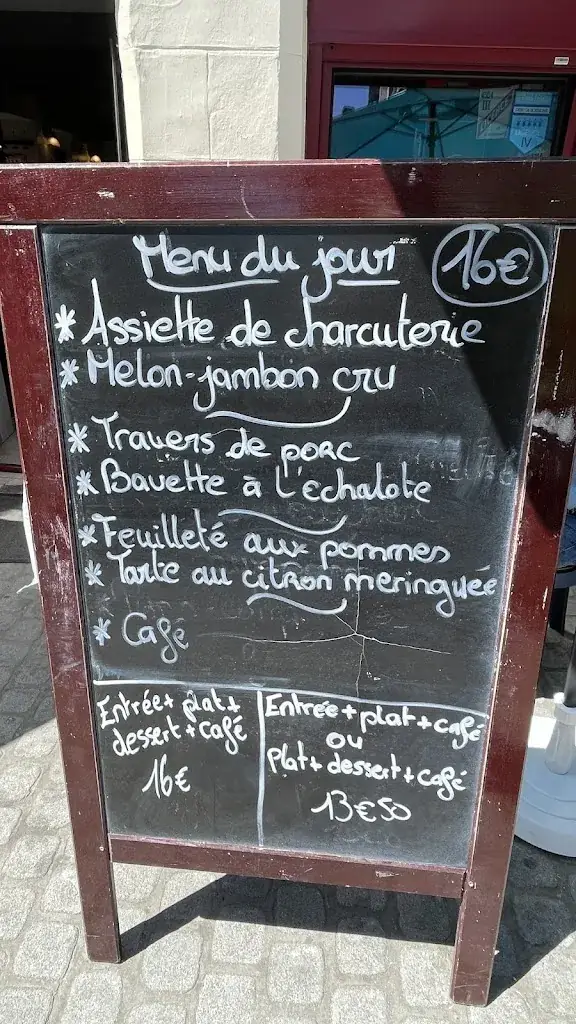 Menu du jour 16€
* Assiette de charcuterie
* Melon-jambon cru
* Travers de porc
* Bavette à l'echalote
* Feuilleté aux pommes
* Tarte au citron meringuée
* Café
Entrée + plat +
dessert + café
16€
Entrée + plat + café
ou
plat + dessert + café
13€50